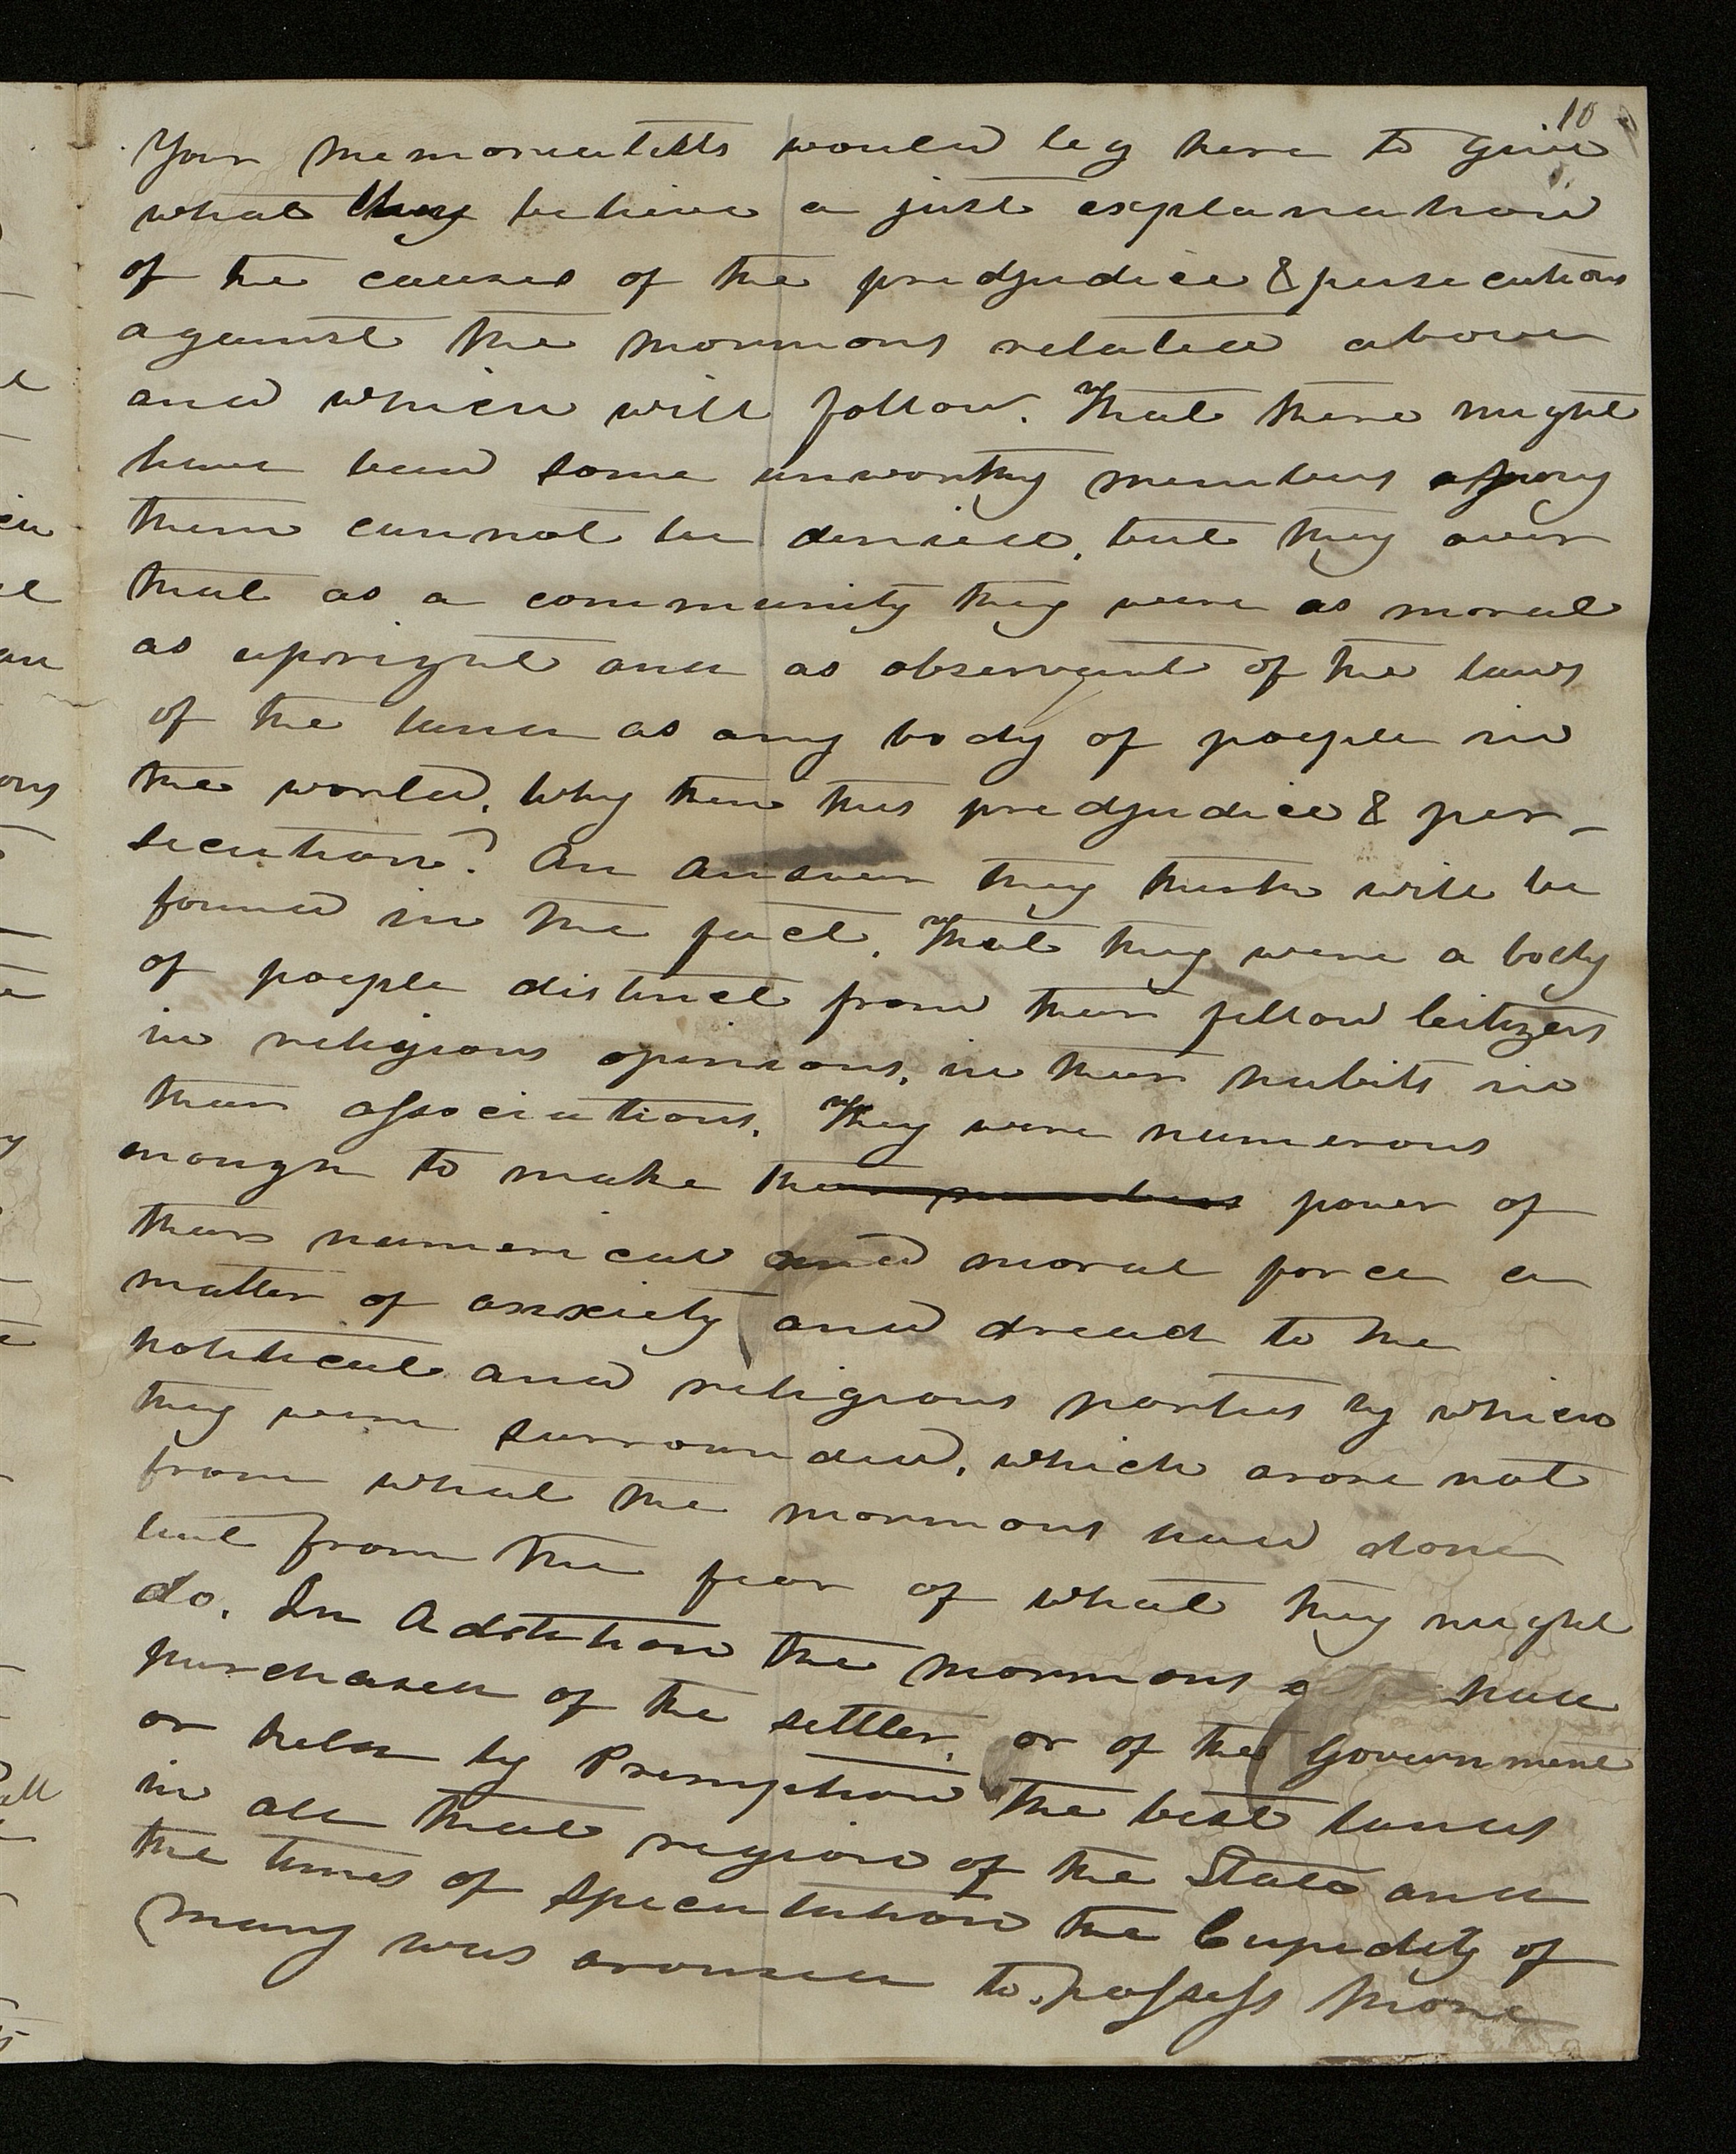 10
Your memorialists would beg here to give
what they believe a just explanation
of the causes of the predjudice & persecutions
against the mormons related above
and which will follow. That there might
have been some unworthy members among
them cannot be denied, but they aver
that as a community they were as moral
as upright and as observant of the laws
of the land as any body of poeple in
the world. Why then this predjudice & per-
secution? An Answer they trust will be
found in the fact. That they were a body
of poeple distinct from their fellow Citizens
in religious opinions, in their habits in
their associations. They were numerous
enough to make their numbers power of
their numerical and moral force a
matter of anxiety and dread to the
political and religious parties by which
they were surrounded, which arose not
from what the mormons had done
but from the fear of what they might
do. In Addition the mormons had
purchased of the settler, or of the Government
or held by Premption the best lands
in all that region of the State and
the times of speculation the Cupidity of
many was aroused to possess more